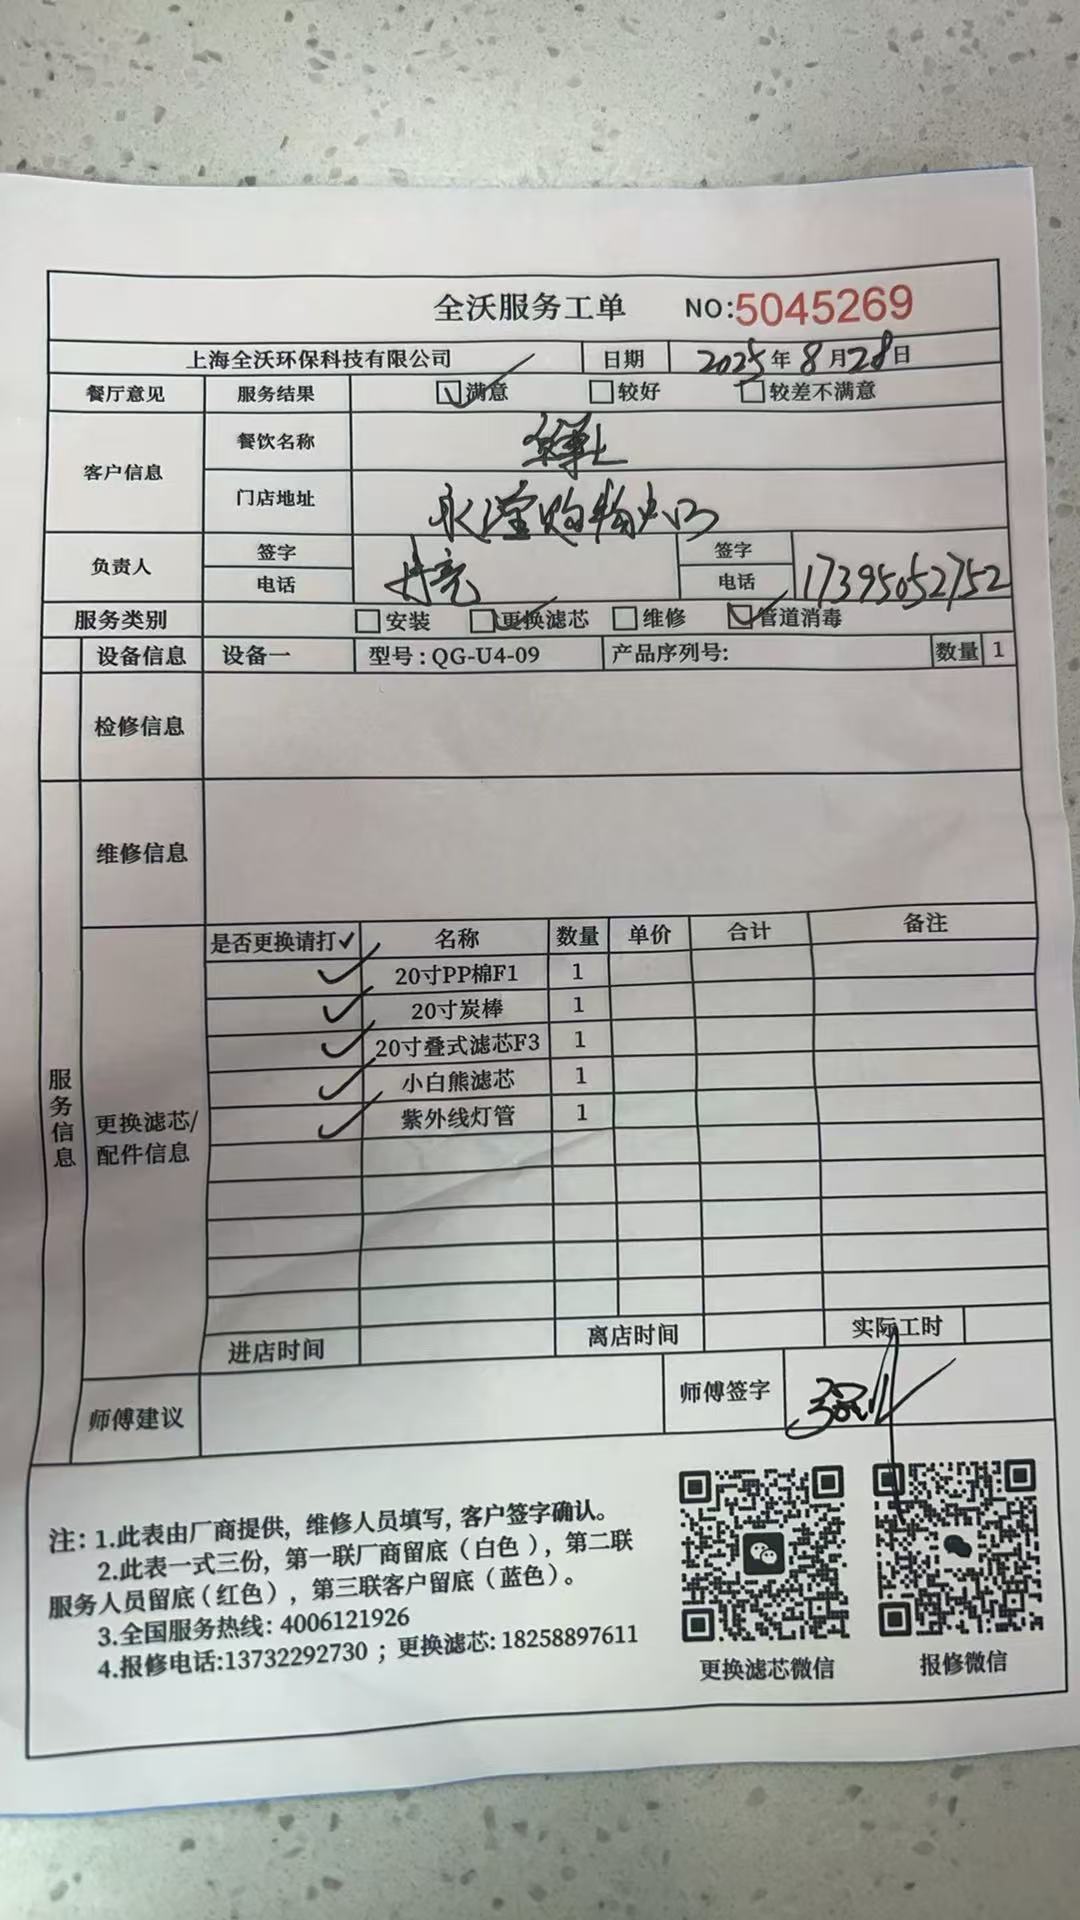 全沃服务工单 NO:5045269
上海全沃环保科技有限公司 日期 2025年8月28日
餐厅意见 服务结果 满意 较好 较差不满意
客户信息 餐饮名称
门店地址 购物中心
负责人 签字 签字
电话 电话 17395052752
服务类别 安装 更换滤芯 维修 管道消毒
设备信息 设备一 型号:QG-U4-09 产品序列号: 数量 1
检修信息
维修信息
服务信息
更换滤芯/配件信息
是否更换请打✓ 名称 数量 单价 合计 备注
✓ 20寸PP棉F1 1
✓ 20寸炭棒 1
✓ 20寸叠式滤芯F3 1
✓ 小白熊滤芯 1
✓ 紫外线灯管 1
进店时间 离店时间 实际工时
师傅建议 师傅签字
注:1.此表由厂商提供,维修人员填写,客户签字确认。
2.此表一式三份,第一联厂商留底(白色),第二联
服务人员留底(红色),第三联客户留底(蓝色)。
3.全国服务热线:4006121926
4.报修电话:13732292730;更换滤芯:18258897611
更换滤芯微信 报修微信